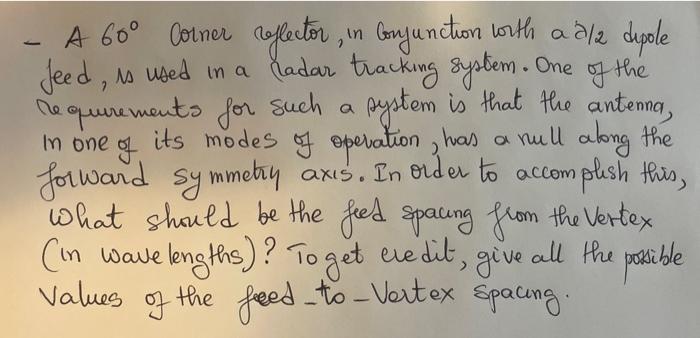 - A 60° Corner reflector, in Conjunction with a λ/2 dipole
feed, is used in a radar tracking system. One of the
requirements for such a system is that the antenna,
in one of its modes of operation, has a null along the
forward symmetry axis. In order to accomplish this,
what should be the feed spacing from the Vertex
(in wavelengths)? To get credit, give all the possible
Values of the feed-to-Vertex spacing.